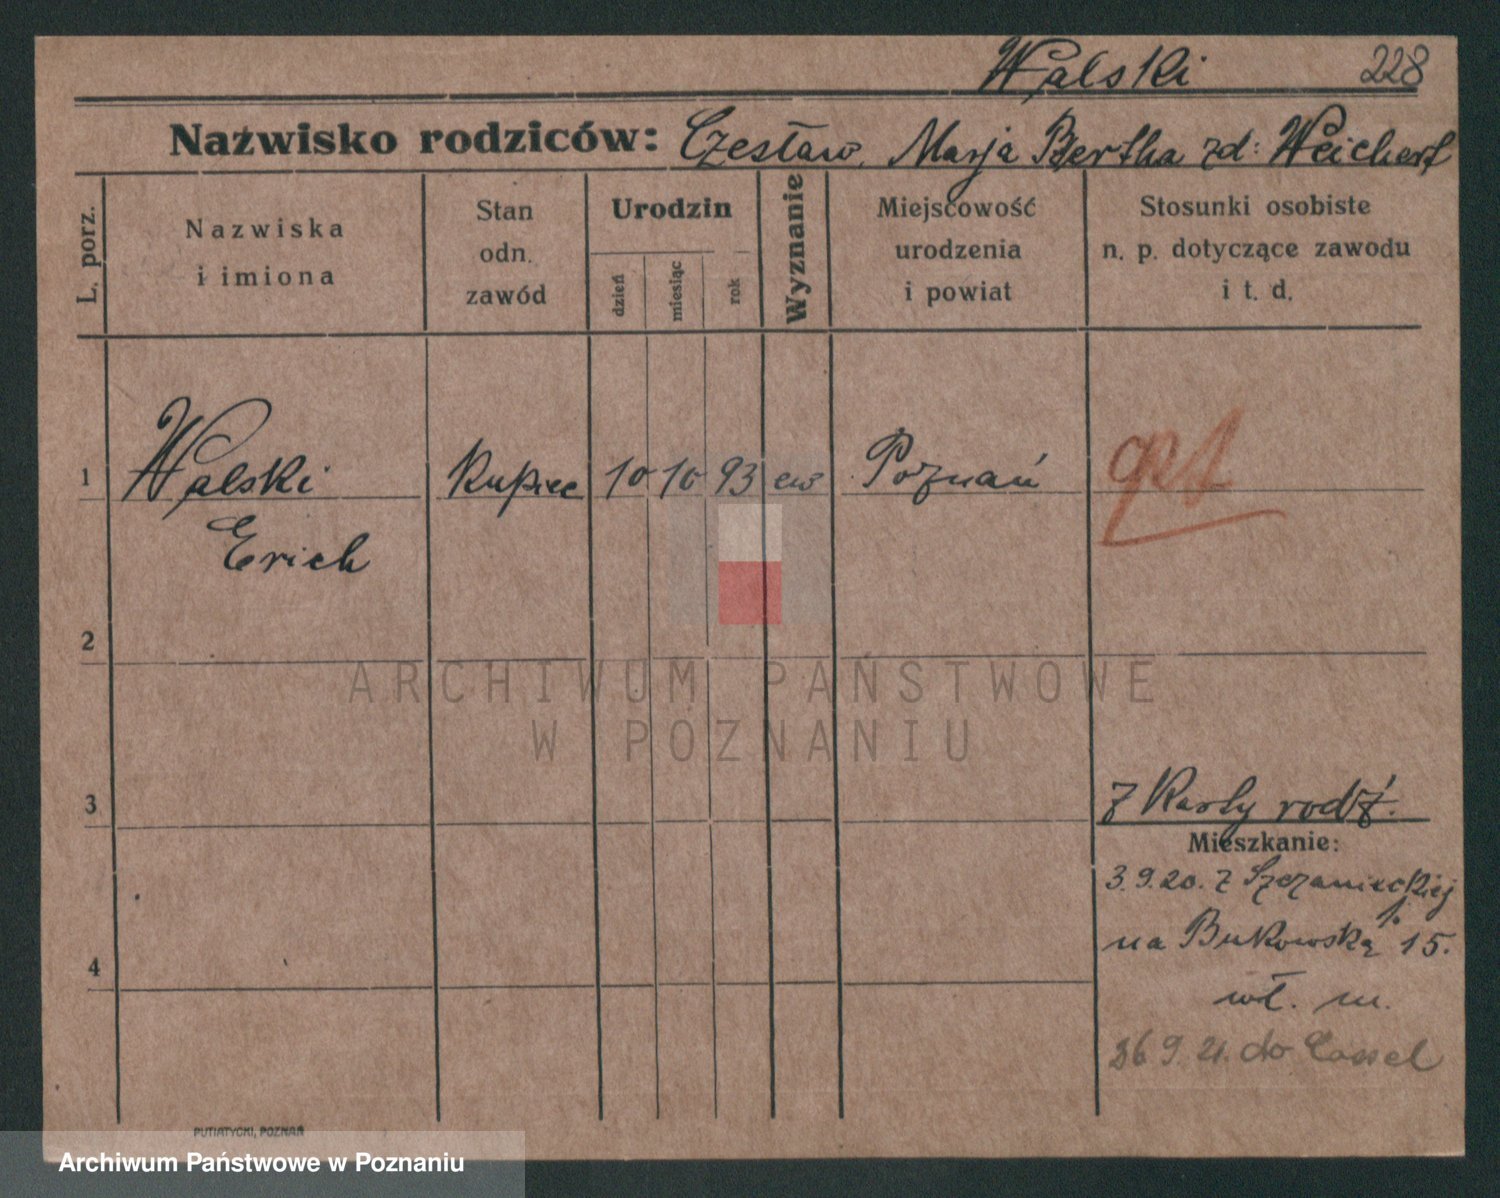 Walski 228
Nazwisko rodziców: Czesław, Marja Bertha zd: Weichert
L. porz.
Nazwiska
i imiona
Stan
odn.
zawód
Urodzin
dzień
miesiąc
rok
Wyznanie
Miejscowość
urodzenia
i powiat
Stosunki osobiste
n. p. dotyczące zawodu
i t. d.
1 Walski Kupiec 10 10 93 ew Poznań opt
Erich
2
3 z Karty rodź.
Mieszkanie:
3.9.20. z Szczanieckiej
na Bukowską 15.
4
wł. m.
26 9. 21. do Cassel
PUTIATYCKI, POZNAŃ
ARCHIWUM PAŃSTWOWE
W POZNANIU
Archiwum Państwowe w Poznaniu